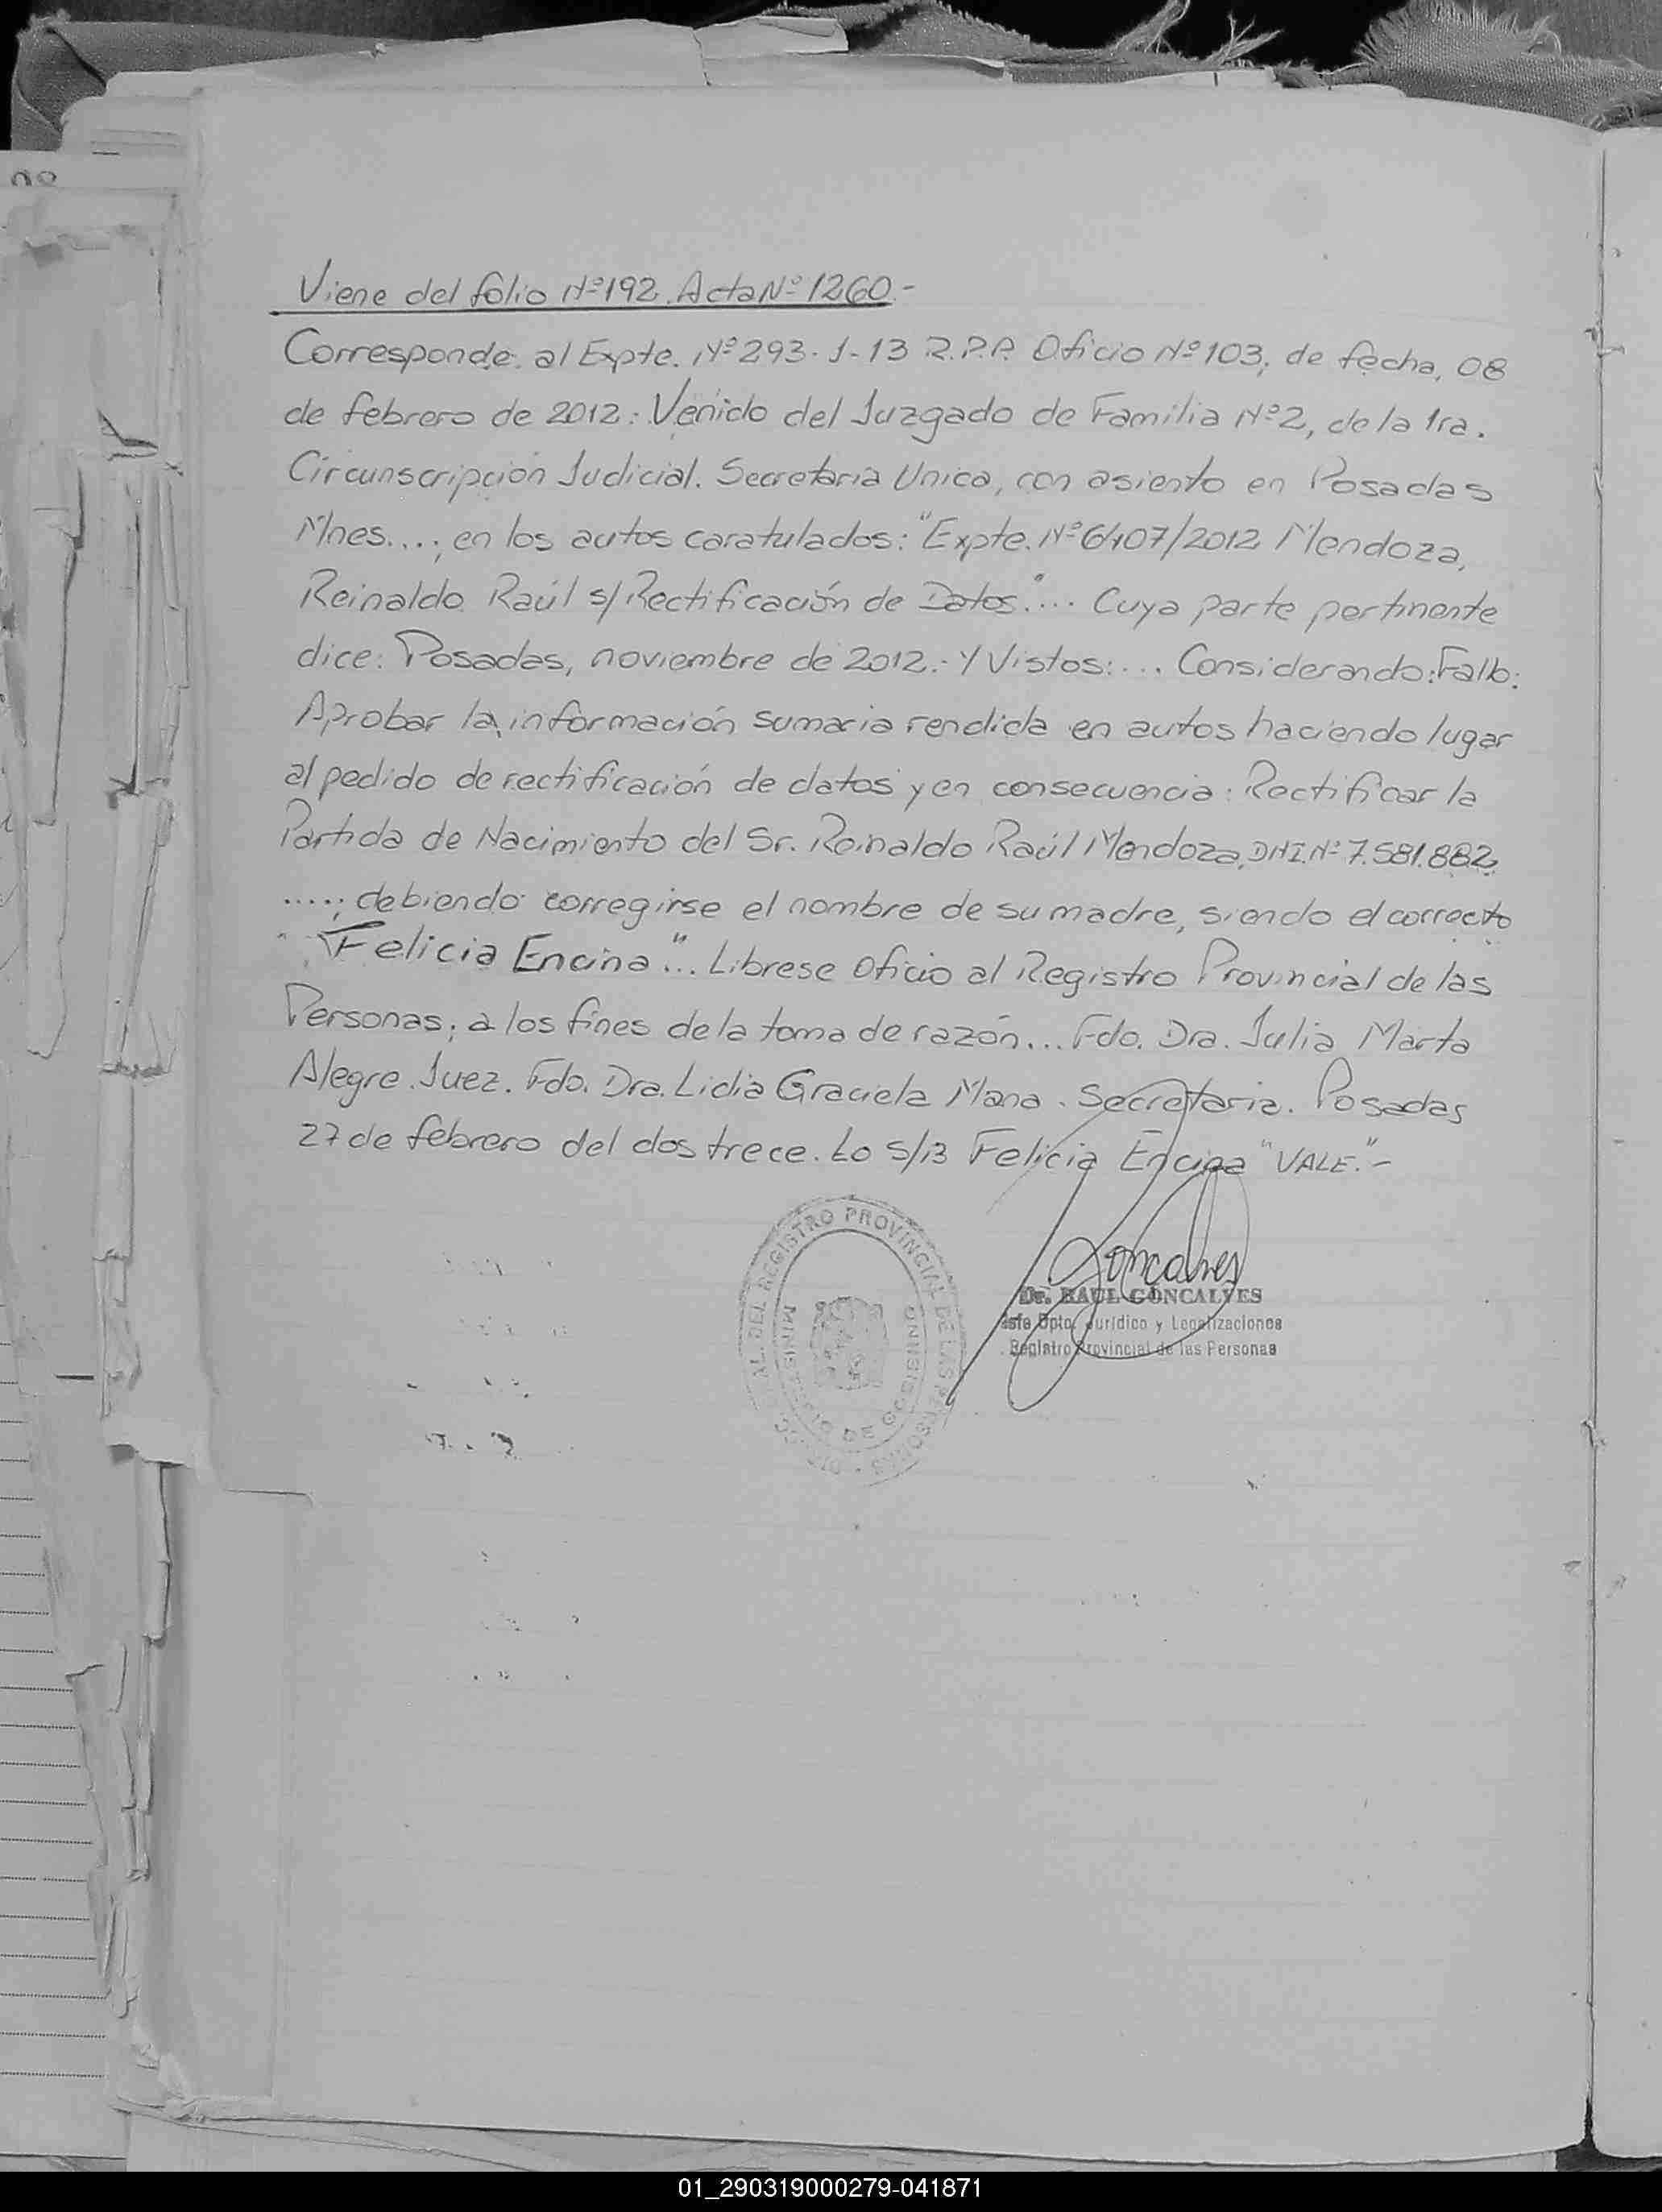 Viene del folio Nº 192. Acta Nº 1260.-
Corresponde al Expte. Nº 293-J-13 R.P.P. Oficio Nº 103, de fecha, 08
de febrero de 2012: Venido del Juzgado de Familia Nº 2, de la 1ra.
Circunscripción Judicial. Secretaría Unica, con asiento en Posadas
Mnes....; en los autos caratulados: "Expte. Nº 6407/2012 Mendoza,
Reinaldo Raúl s/Rectificación de Datos".... Cuya parte pertinente
dice: Posadas, noviembre de 2012.- Y Vistos:... Considerando: Fallo:
Aprobar la información sumaria rendida en autos haciendo lugar
al pedido de rectificación de datos y en consecuencia: Rectificar la
Partida de Nacimiento del Sr. Reinaldo Raúl Mendoza, DNI. Nº 7.581.882
.....; debiendo corregirse el nombre de su madre, siendo el correcto
"Felicia Encina"... Librese Oficio al Registro Provincial de las
Personas; a los fines de la toma de razón... Fdo. Dra. Julia Marta
Alegre. Juez. Fdo. Dra. Lidia Graciela Mana. Secretaria. Posadas
27 de febrero del dos trece. Lo s/B Felicia Encina "VALE."-
REGISTRO PROVINCIAL DE LAS PERSONAS
MINISTERIO DE GOBIERNO
Goncalves
Dr. RAUL GONCALVES
Jefe Dpto. Jurídico y Legalizaciones
Registro Provincial de las Personas
01_290319000279-041871